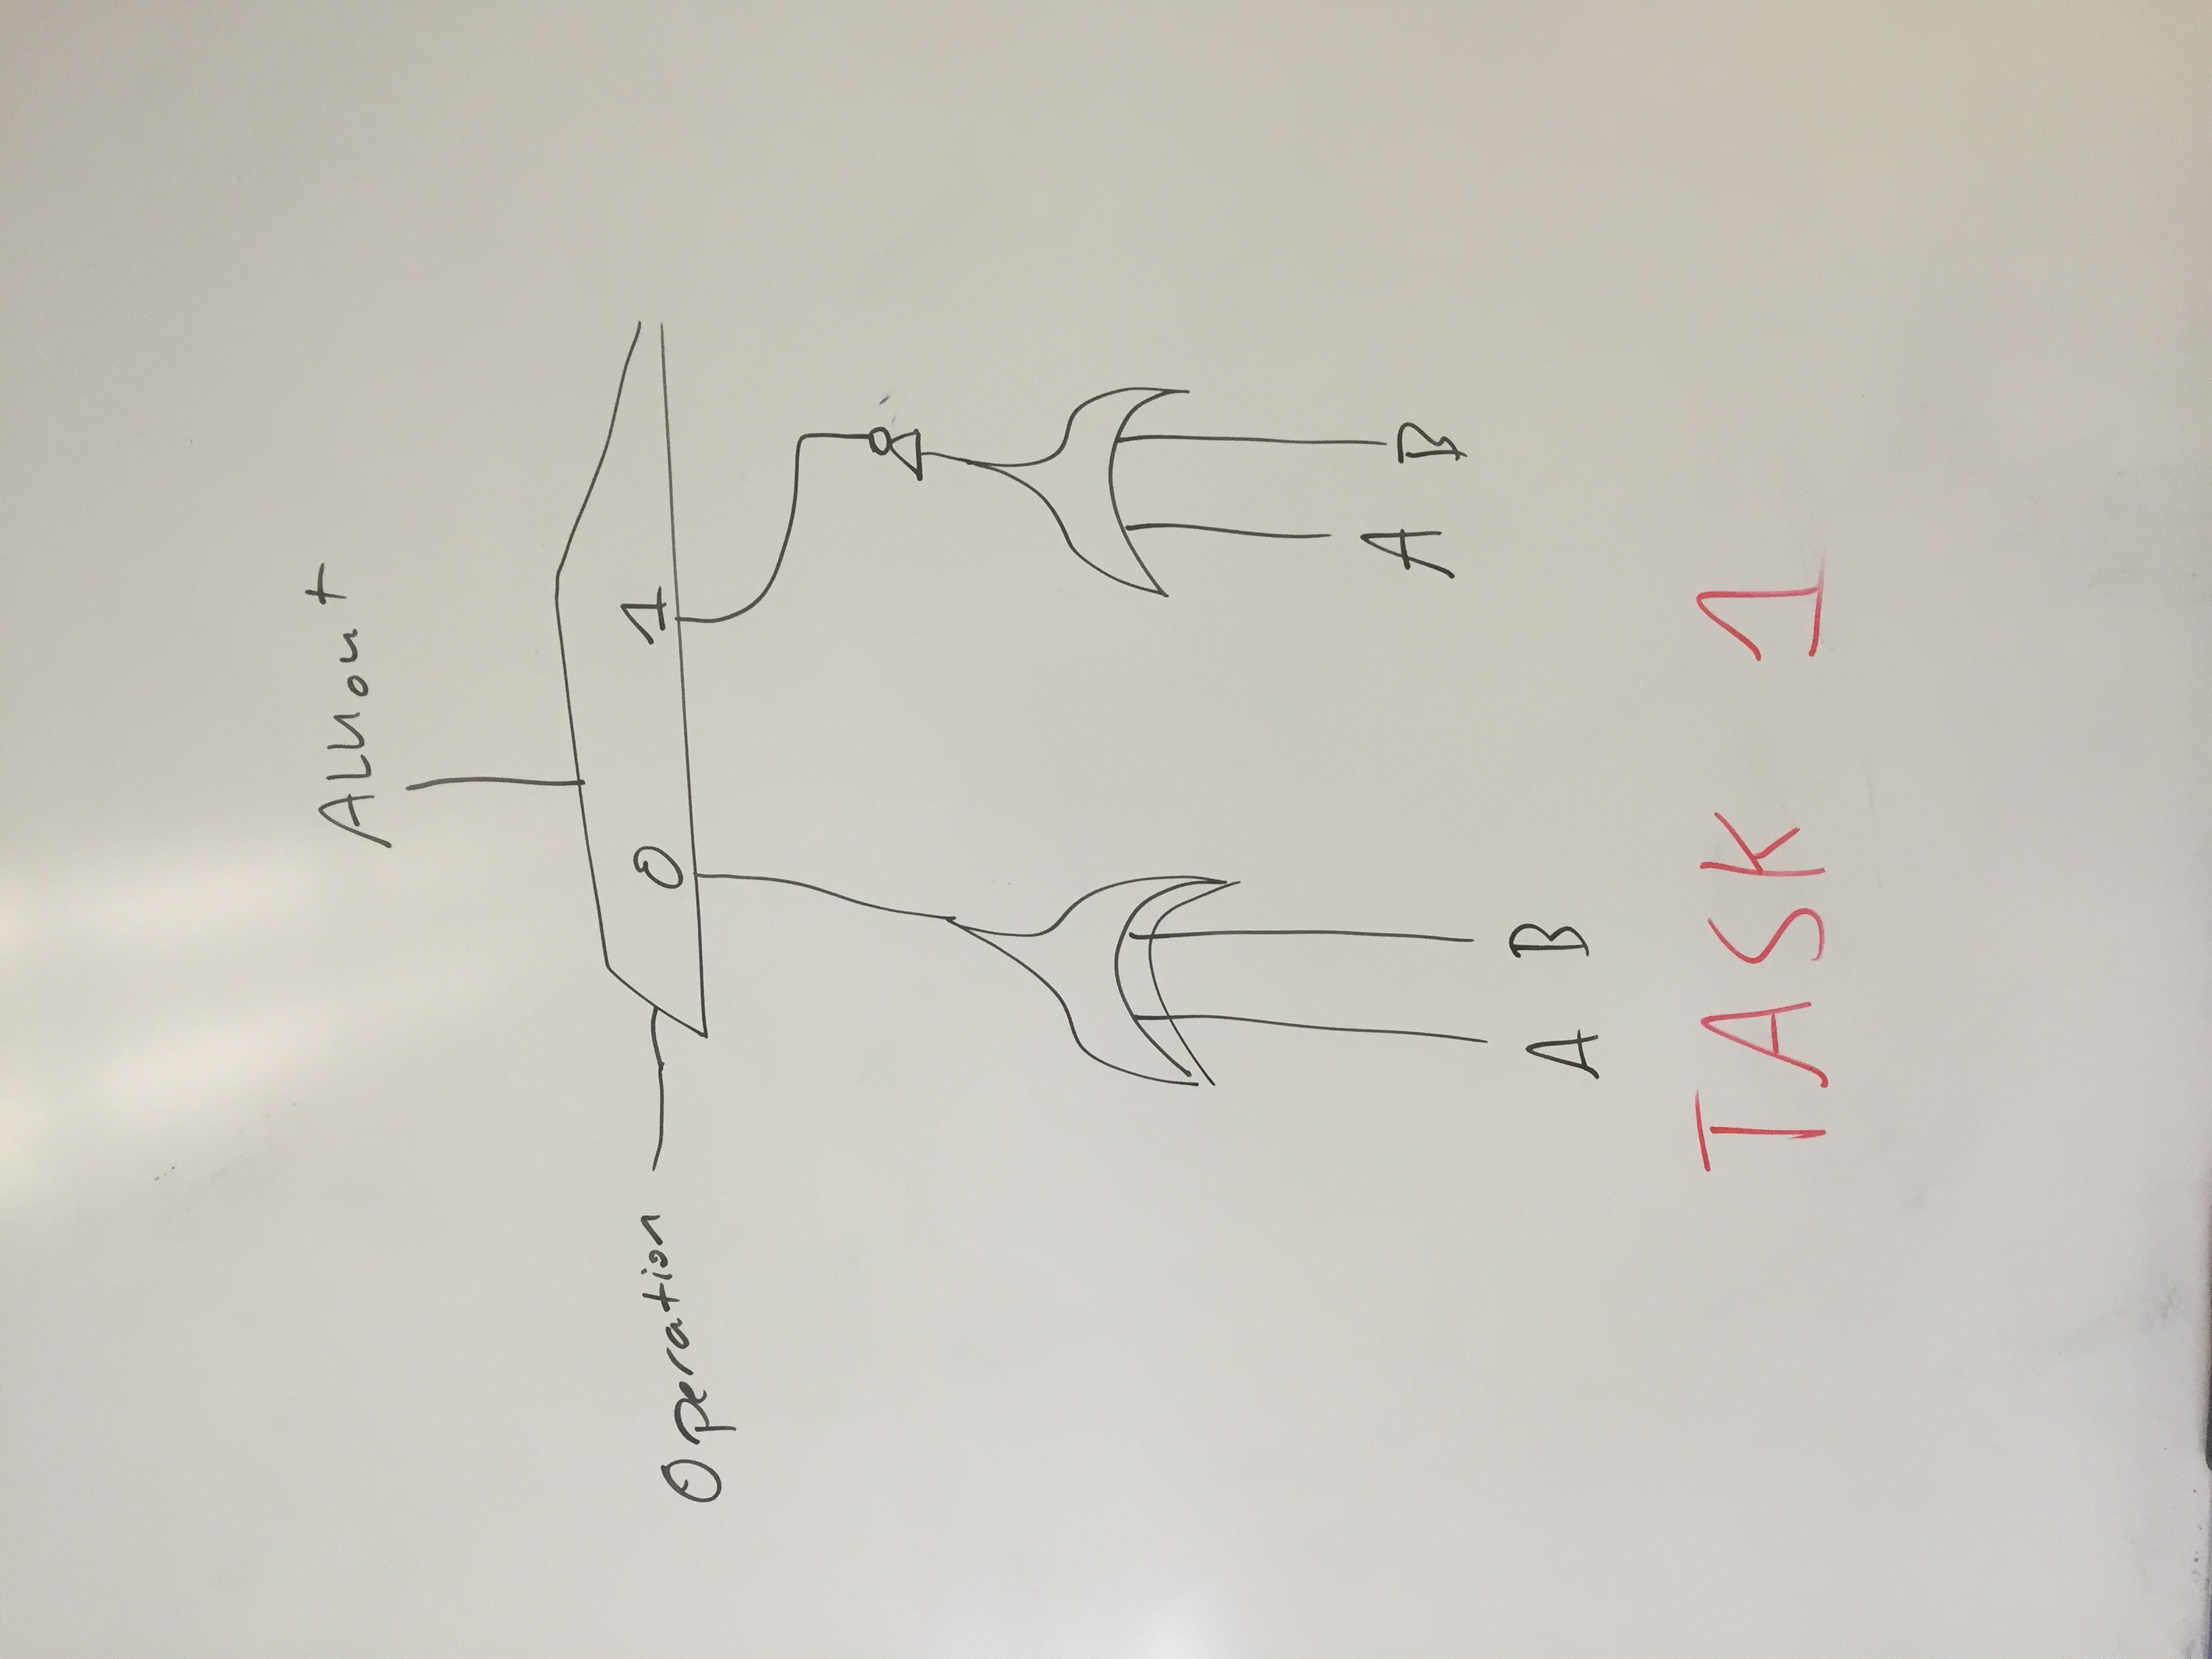 ALUout
Operation
0 1
A B
A B
TASK 1